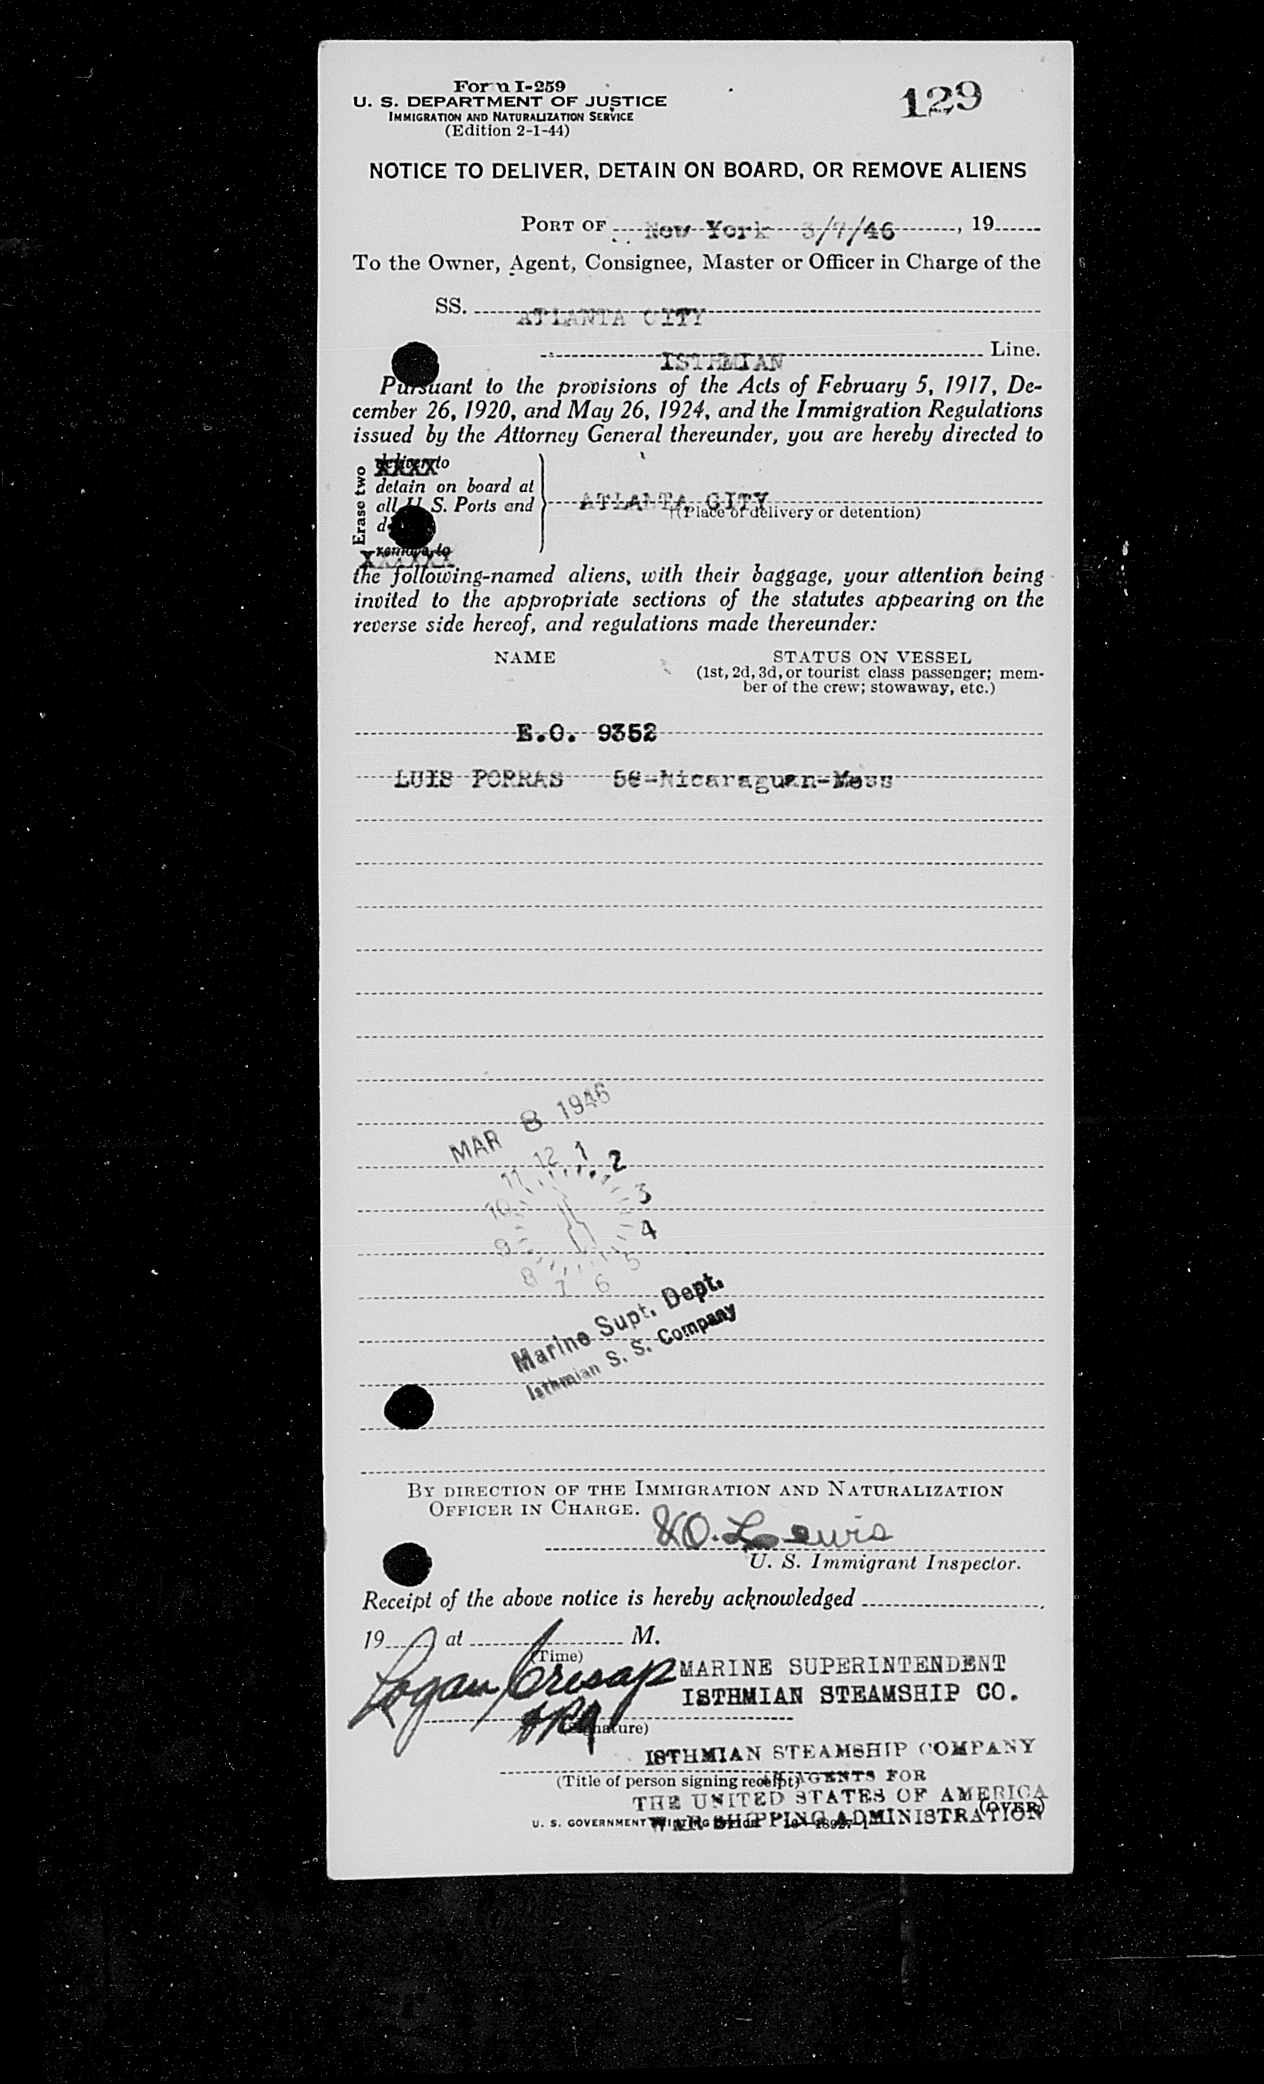 Form I-259
U. S. DEPARTMENT OF JUSTICE
IMMIGRATION AND NATURALIZATION SERVICE
(Edition 2-1-44)
129
NOTICE TO DELIVER, DETAIN ON BOARD, OR REMOVE ALIENS
PORT OF New York 3/7/46, 19
To the Owner, Agent, Consignee, Master or Officer in Charge of the
SS. ATLANTA CITY
ISTHMIAN Line.
Pursuant to the provisions of the Acts of February 5, 1917, De-
cember 26, 1920, and May 26, 1924, and the Immigration Regulations
issued by the Attorney General thereunder, you are hereby directed to
Erase two
deliver to
detain on board at
all U. S. Ports and
remove to
ATLANTA CITY
(Place of delivery or detention)
the following-named aliens, with their baggage, your attention being
invited to the appropriate sections of the statutes appearing on the
reverse side hereof, and regulations made thereunder:
NAME STATUS ON VESSEL
(1st, 2d, 3d, or tourist class passenger; mem-
ber of the crew; stowaway, etc.)
E.O. 9352
LUIS PORRAS -Nicaraguan-Mess
MAR 8 1946
12 1 2 3 4 5 6 7 8 9 10 11
Marine Supt. Dept.
Isthmian S. S. Company
BY DIRECTION OF THE IMMIGRATION AND NATURALIZATION
OFFICER IN CHARGE.
Lewis
U. S. Immigrant Inspector.
Receipt of the above notice is hereby acknowledged
19 at M.
(Time)
Logan Cresap
MARINE SUPERINTENDENT
ISTHMIAN STEAMSHIP CO.
(Signature)
ISTHMIAN STEAMSHIP COMPANY
(Title of person signing receipt)
AGENTS FOR
THE UNITED STATES OF AMERICA
(OVER)
WAR SHIPPING ADMINISTRATION
U. S. GOVERNMENT PRINTING OFFICE